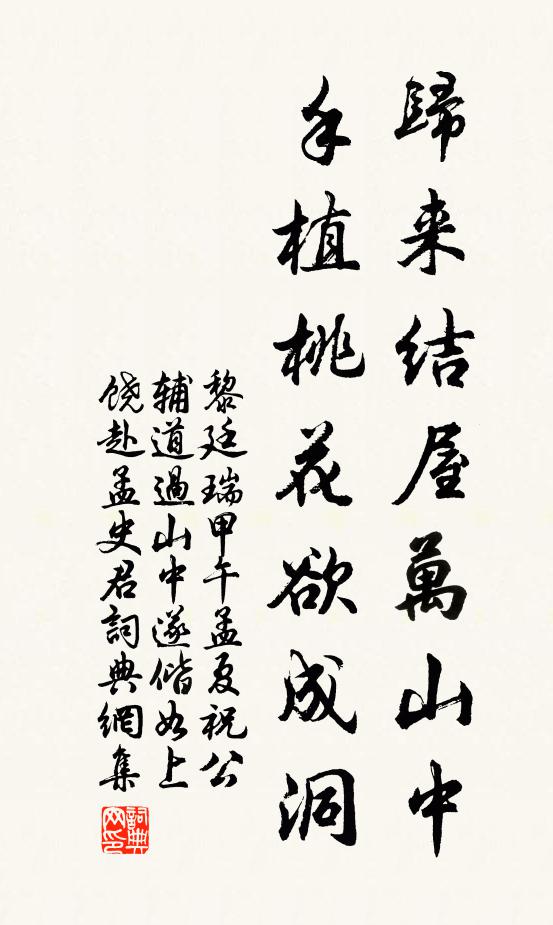 歸来结屋萬山中
手植桃花欲成洞
黎廷瑞甲午孟夏祝公
辅道過山中遂偕如上
饶赴孟史君詞典網集
詞典网印